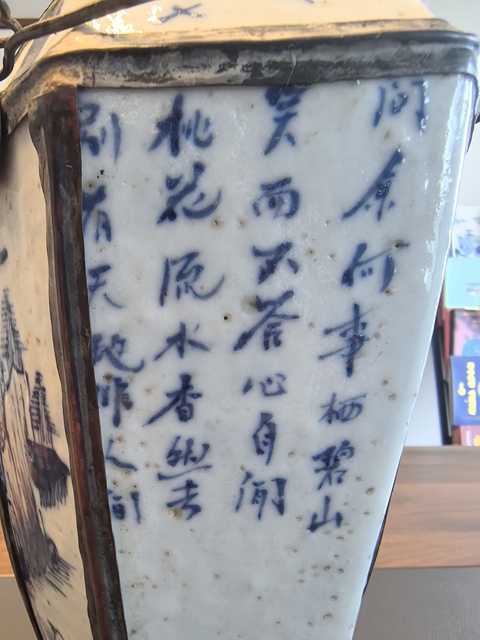 問余何事栖碧山
笑而不答心自閒
桃花流水香然去
別有天地非人間